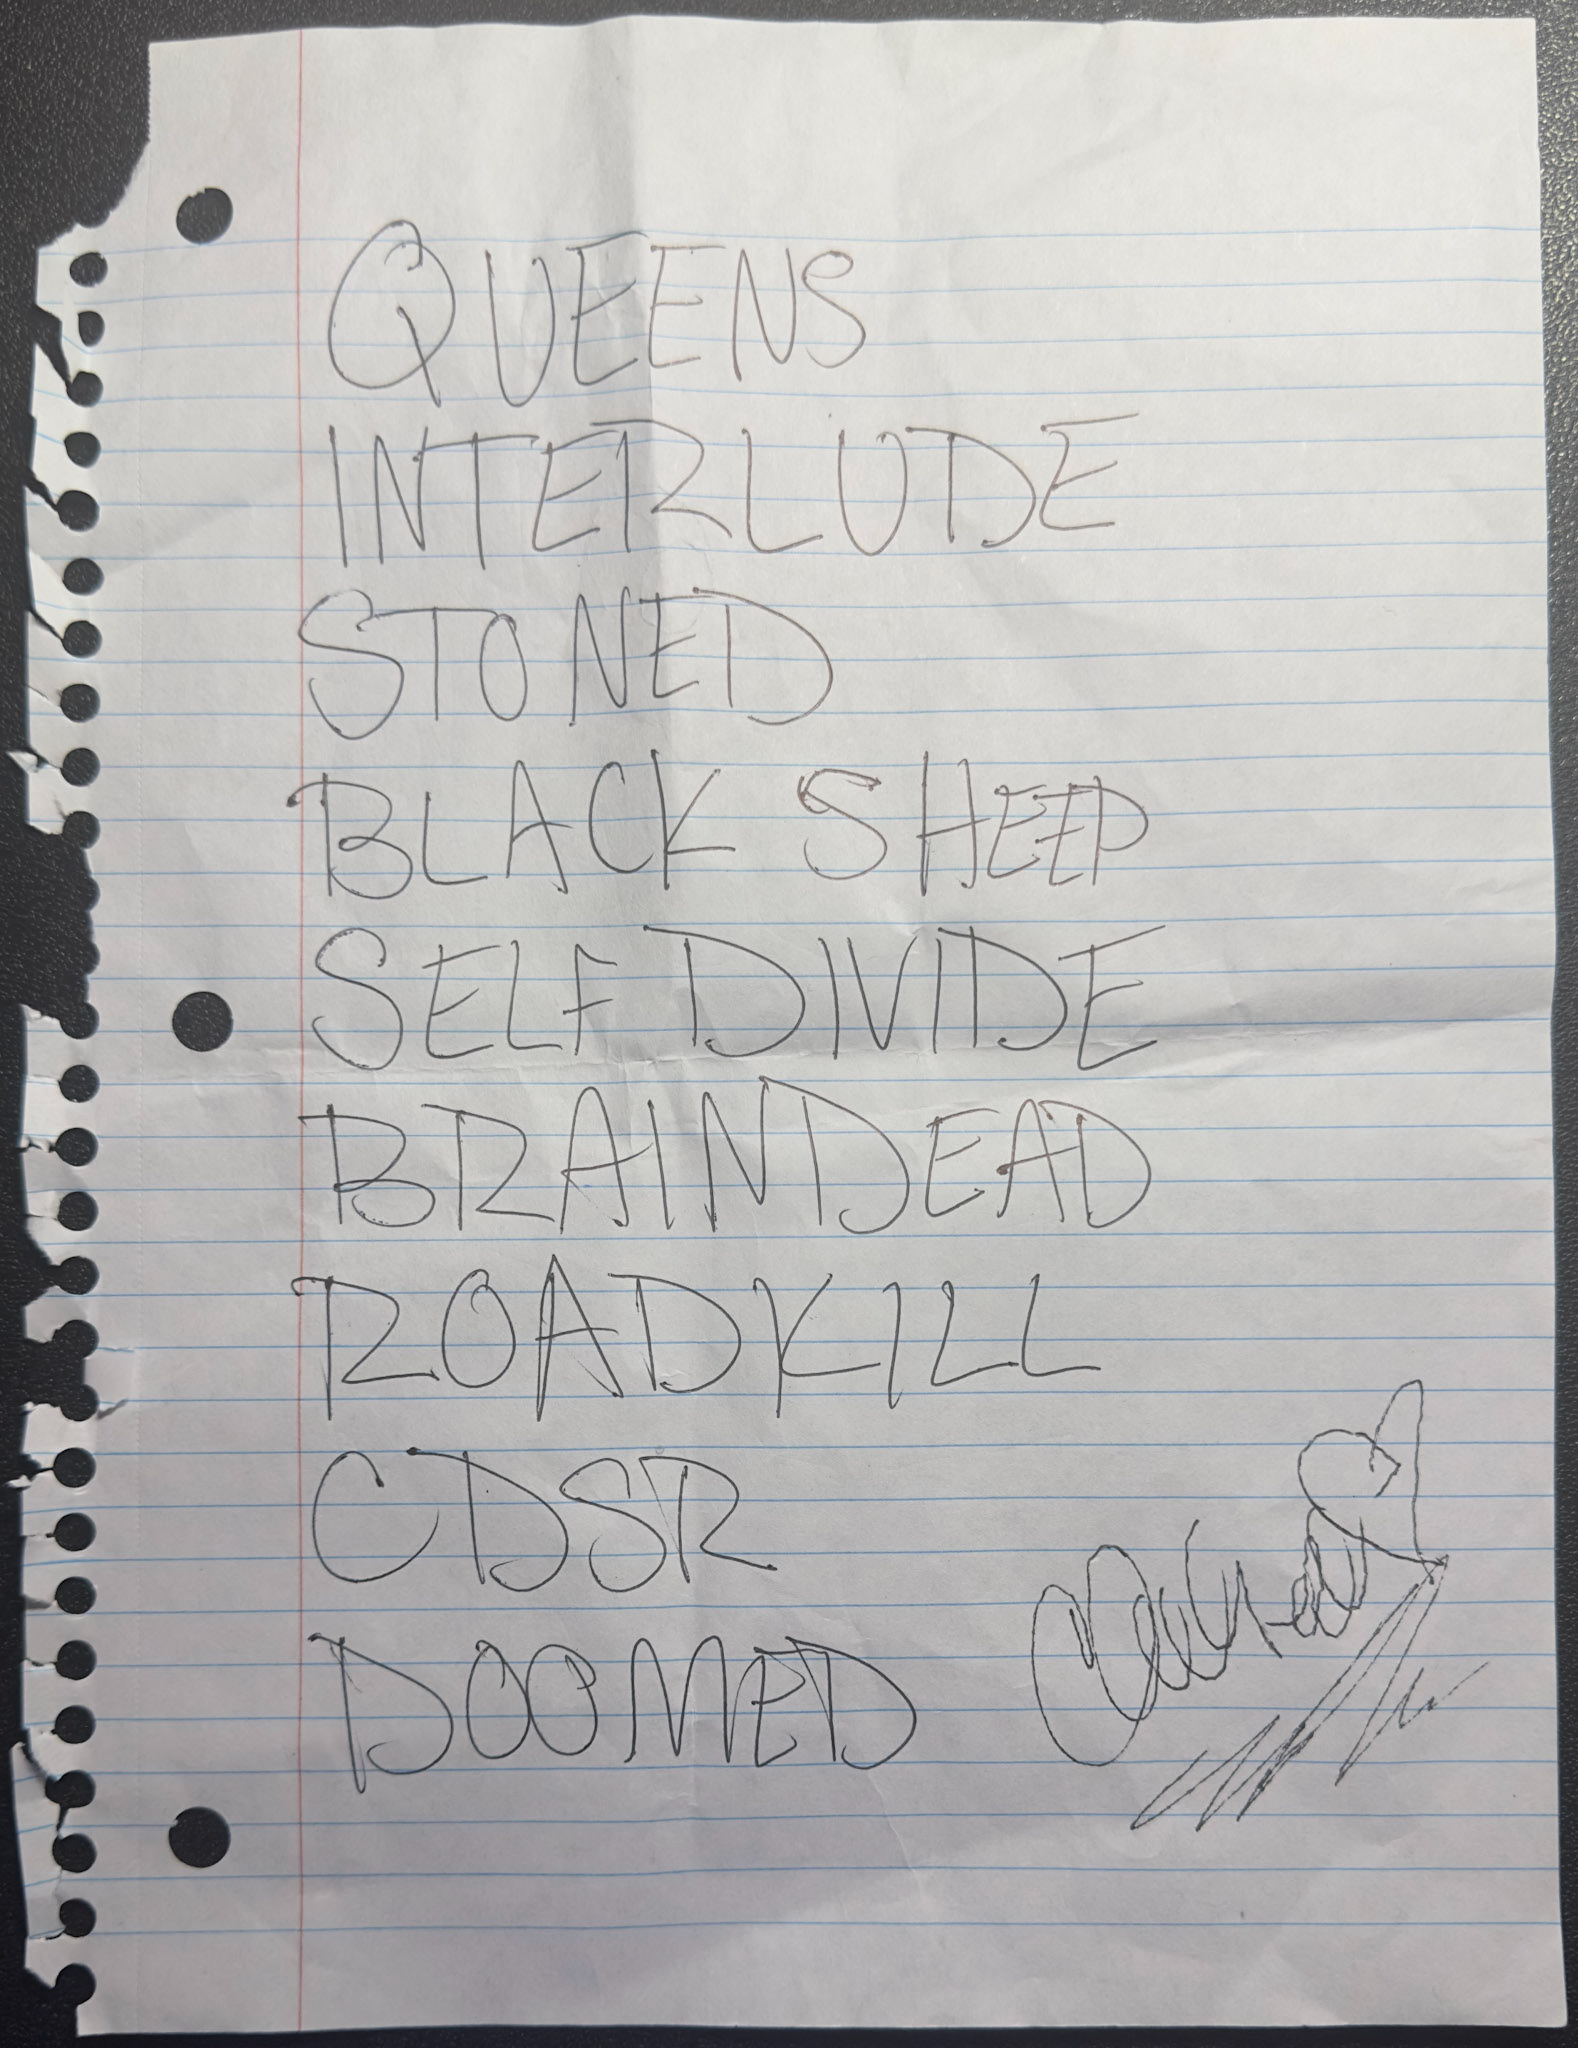 QUEENS
INTERLUDE
STONED
BLACK SHEEP
SELF DIVIDE
BRAINDEAD
ROADKILL
CDSR
DOOMED